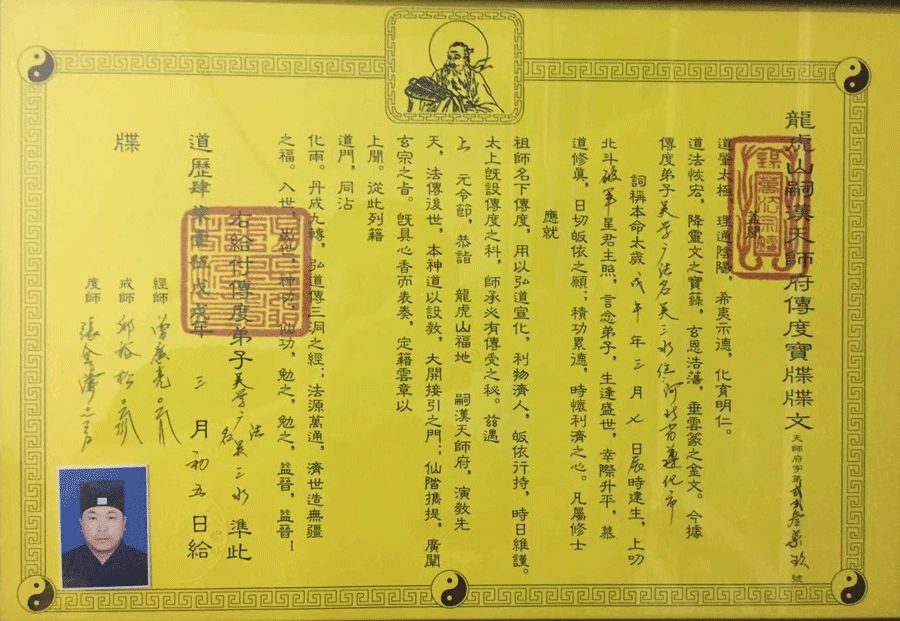 龍虎山嗣漢天師府傳度寶牒牒文
天師府字第 號
蓋聞
道肇太極,理通陰陽,希夷示德,化育明仁。
道法恢宏,降靈文之寶籙,玄恩浩蕩,垂雲篆之金文。今據
傳度弟子 法名 三水 住河北省遵化市
詞稱本命太歲 戊年 三月七日辰時建生,上叨
北斗破軍星君主照,言念弟子,生逢盛世,幸際升平,慕
道修真,日切皈依之願;積功累德,時懷利濟之心。凡屬修士
應就
祖師名下傳度,用以弘道宣化,利物濟人,皈依行持,時日維謹。
太上旣設傳度之科,師承必有傳受之秘。茲遇
上元令節,恭詣 龍虎山福地 嗣漢天師府,演教先
天,法傳後世,本神道以設教,大開接引之門;仙階攜提,廣闡
玄宗之旨。旣具心香而表奏,定籍雲章以
上聞。從此列籍
道門,同沾
化雨。丹成九轉,弘道傳三洞之經;法源萬通,濟世造無疆
之福。入世、出世、神功、仙功,勉之、勉之,益晉,益晉!
右給付傳度弟子 法名 三水 準此
道歷肆 戊戌年 三月初五日給
經師 曾廣亮
戒師 邱裕松
度師 張金濤
牒